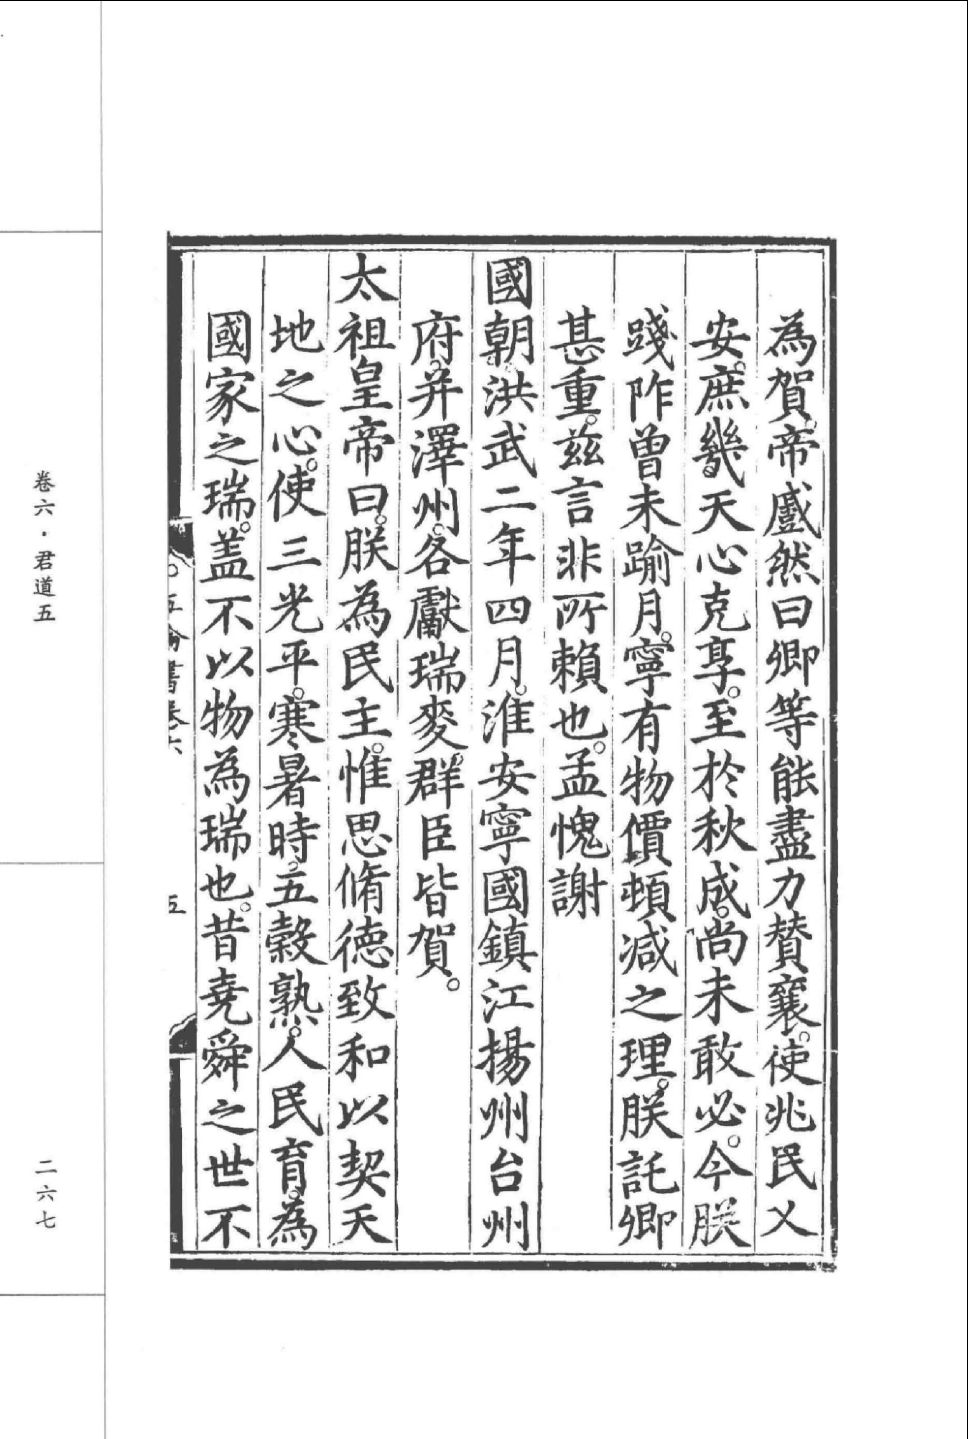 為賀。帝蹙然曰卿等能盡力賛襄。使兆民乂
安。庶幾天心克享。至於秋成。尚未敢必。今朕
踐阼曾未踰月。寧有物價頓减之理。朕託卿
甚重。兹言非所賴也。孟愧謝
國朝洪武二年四月。淮安寧國鎮江揚州台州
府。并澤州。各獻瑞麥。群臣皆賀。
太祖皇帝曰。朕為民主。惟思脩德致和以契天
地之心。使三光平。寒暑時。五穀熟。人民育。為
國家之瑞。盖不以物為瑞也。昔堯舜之世不
五倫書卷六
五
卷六·君道五
二六七